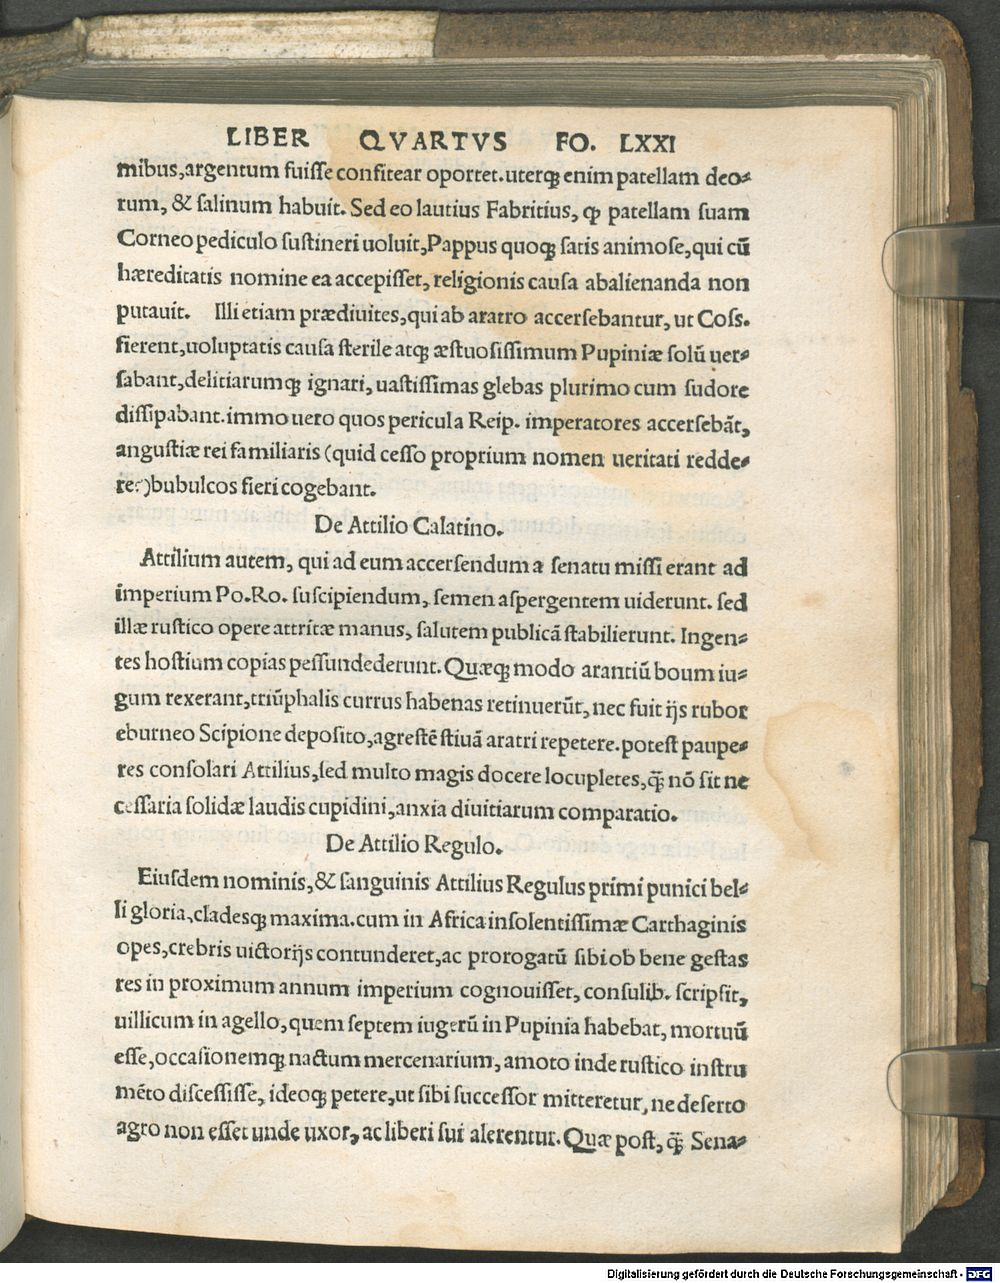 LIBER QVARTVS FO. LXXI
mibus,argentum fuiſſe confitear oportet.uterqꝫ enim patellam deo⸗
rum, & ſalinum habuit. Sed eo lautius Fabritius, ꝙ patellam ſuam
Corneo pediculo ſuſtineri uoluit,Pappus quoqꝫ ſatis animoſe,qui cũ
hæreditatis nomine ea accepiſſet, religionis cauſa abalienanda non
putauit. Illi etiam prædiuites,qui ab aratro accerſebantur, ut Coſſ.
fierent,uoluptatis cauſa ſterile atqꝫ æſtuoſiſſimum Pupiniæ ſolũ uer⸗
ſabant,delitiarumqꝫ ignari, uaſtiſſimas glebas plurimo cum ſudore
diſſipabant.immo uero quos pericula Reip. imperatores accerſebãt,
anguſtiæ rei familiaris (quid ceſſo proprium nomen ueritati redde⸗
re?)bubulcos fieri cogebant.
De Attilio Calatino.
Attilium autem, qui ad eum accerſendum a ſenatu miſſi erant ad
imperium Po.Ro. ſuſcipiendum, ſemen aſpergentem uiderunt. ſed
illæ ruſtico opere attritæ manus, ſalutem publicã ſtabilierunt. Ingen⸗
tes hoſtium copias peſſundederunt. Quæqꝫ modo arantiũ boum iu⸗
gum rexerant,triũphalis currus habenas retinuerũt, nec fuit ijs rubor
eburneo Scipione depoſito,agreſtẽ ſtiuã aratri repetere. poteſt paupe⸗
res conſolari Attilius,ſed multo magis docere locupletes,q̃ꝫ nõ ſit ne
ceſſaria ſolidæ laudis cupidini,anxia diuitiarum comparatio.
De Attilio Regulo.
Eiuſdem nominis,& ſanguinis Attilius Regulus primi punici bel⸗
li gloria,cladesqꝫ maxima.cum in Africa inſolentiſſimæ Carthaginis
opes,crebris uictorijs contunderet,ac prorogatũ ſibi ob bene geſtas
res in proximum annum imperium cognouiſſet, conſulib. ſcripſit,
uillicum in agello,quem ſeptem iugerũ in Pupinia habebat, mortuũ
eſſe,occaſionemqꝫ nactum mercenarium, amoto inde ruſtico inſtru
mẽto diſceſſiſſe, ideoqꝫ petere,ut ſibi ſucceſſor mitteretur, ne deſerto
agro non eſſet unde uxor, ac liberi ſui alerentur. Quæ poſt, q̃ꝫ Sena⸗
Digitalisierung gefördert durch die Deutsche Forschungsgemeinschaft - DFG